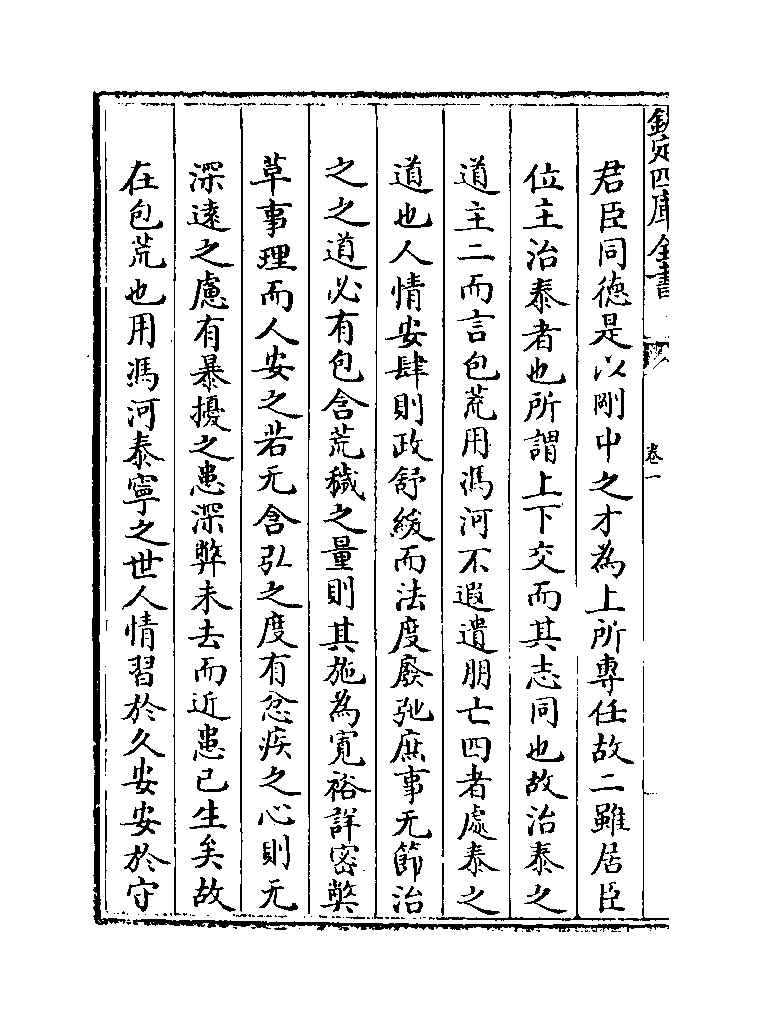 欽定四庫全書
卷一
君臣同德是以剛中之才為上所專任故二雖居臣
位主治泰者也所謂上下交而其志同也故治泰之
道主二而言包荒用馮河不遐遺朋亡四者處泰之
道也人情安肆則政舒緩而法度廢弛庶事无節治
之之道必有包含荒穢之量則其施為寛裕詳密弊
草事理而人安之若无含弘之度有忿疾之心則无
深遠之慮有暴擾之患深弊未去而近患已生矣故
在包荒也用馮河泰寧之世人情習於久安安於守